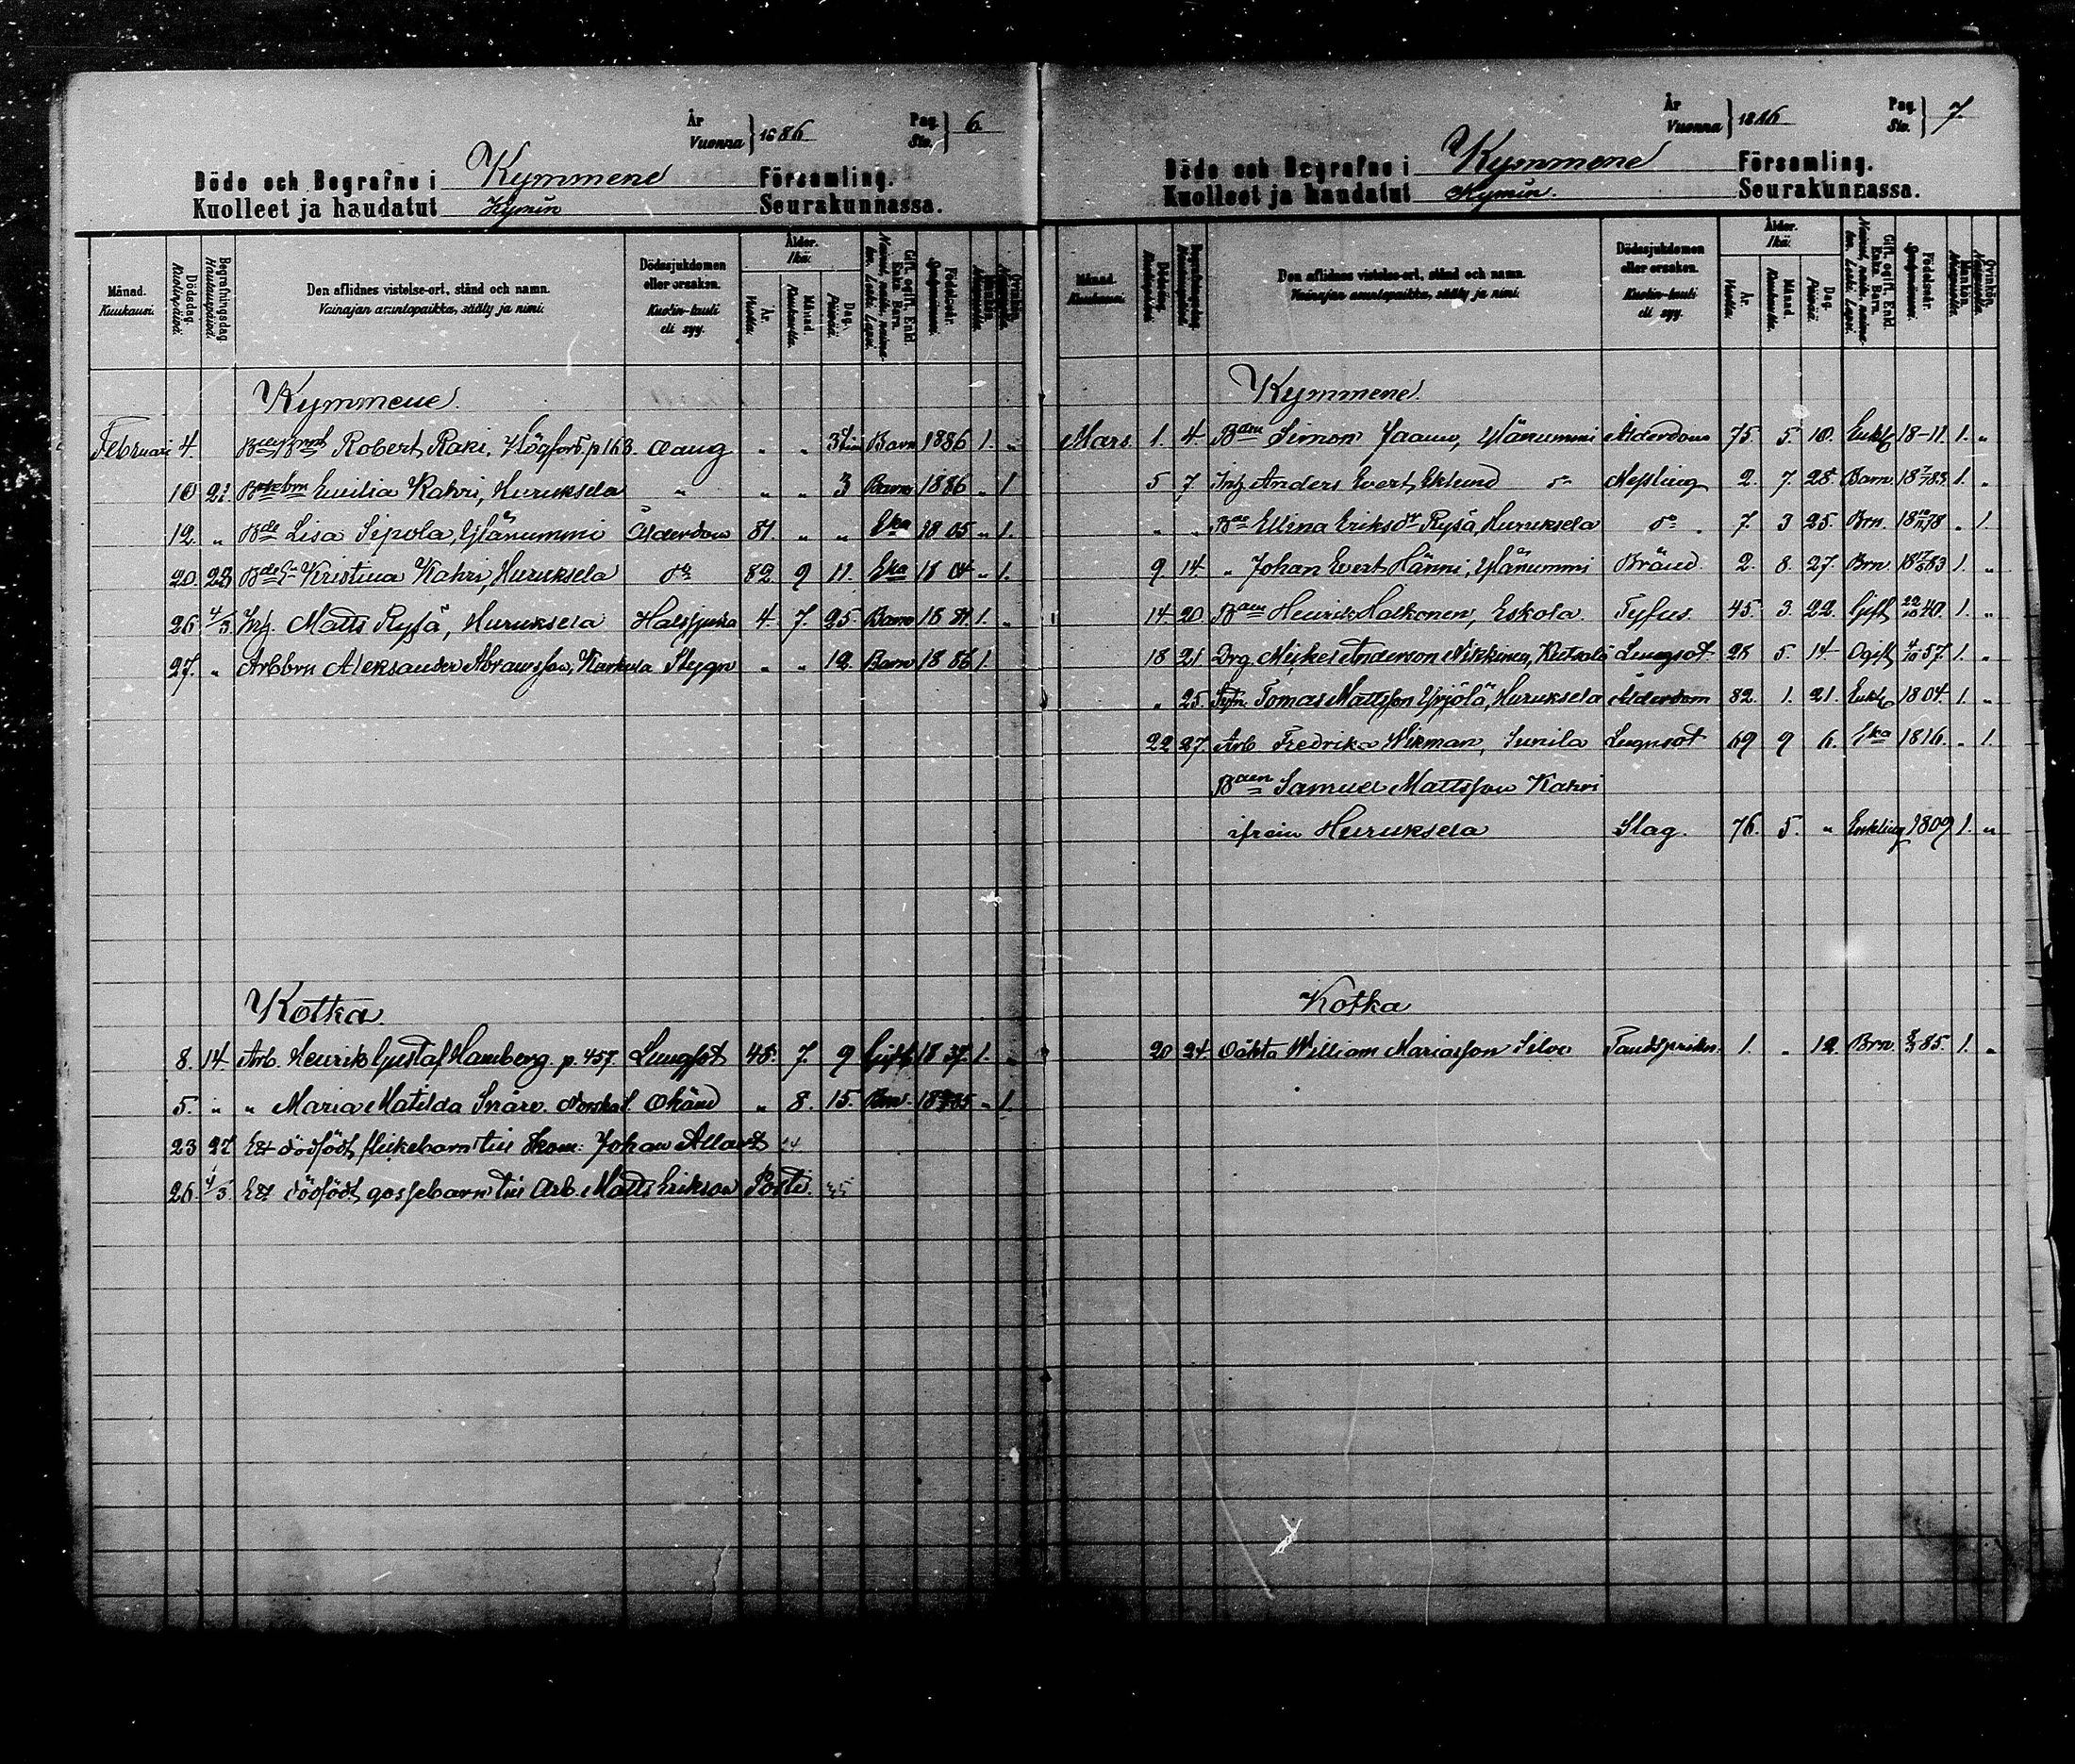 År Vuonna } 1886 Pag. Siv. } 6.
Döde och Begrafne i Kymmene Församling.
Kuolleet ja haudatut Kymin Seurakunnassa.
Månad. Kuukausi. Dödsdag. Kuolinpäivä. Begrafningsdag. Hautauspäivä. Den aflidnes vistelse-ort, stånd och namn. Vainajan asuntopaikka, sääty ja nimi. Dödssjukdomen eller orsaken. Kuolin-tauti eli syy. Ålder. Ikä. År. Vuotta. Månad. Kuukautta. Dag. Päivää. Gift, ogift, Enkl. Enka. Barn. Födelseår. Mankön. Qvinkön.
Kymmene.
Februari 4. Robert Raki, Högfors, p 163. " " 3 Barn 1886 1. "
10 21 Emilia Kahri, Huruksela " " " 3 Barn 1886 " 1
12. " Bde Lisa Sipola, Ylänummi Ålderdom 81. " " Eka 1805 " 1.
20. 23 Kristina Kahri, Huruksela do 82 9 11. Eka 1804 " 1.
26 4/3 Inh. Matts Ryssä, Huruksela Halssjuka 4. 7. 25. Barn 1881. 1. "
27. " Arbbrn Aleksander Abramsson, Karhula Slagn " " 12 Barn 1886 1.
Kotka.
8. 14. Arb. Henrik Gustaf Hamberg. p. 457. Lungsot 48. 7. 9 Gift 1837. 1. "
5. " " Maria Matilda Snåre. Norska l. Okänd " 8. 15. Brn. 1885 " 1.
23 27 Ett dödfödt flickebarn till Skom: Johan Allart
26. 4/3. Ett dödfödt gossebarn till Arb. Matts Erikson Posti.
År Vuonna } 1886 Pag. Siv. } 7.
Döde och Begrafne i Kymmene Församling.
Kuolleet ja haudatut Kymin. Seurakunnassa.
Månad. Kuukausi. Dödsdag. Kuolinpäivä. Begrafningsdag. Hautauspäivä. Den aflidnes vistelse-ort, stånd och namn. Vainajan asuntopaikka, sääty ja nimi. Dödssjukdomen eller orsaken. Kuolin-tauti eli syy. Ålder. Ikä. År. Vuotta. Månad. Kuukautta. Dag. Päivää. Gift, ogift, Enkl. Enka. Barn. Födelseår. Mankön. Qvinkön.
Kymmene.
Mars. 1. 4. Simon Jaanu, Ylänummi Ålderdom 75. 5 10. Enkl 18-11 1. "
5 7 Inh Anders Evert Eklund do Messling 2. 7. 28. Barn. 1. "
" " Ellina Eriksdr Ryssä, Huruksela do 7. 3 25. Brn. " 1.
9 14. " Johan Evert Hänni, Ylänummi Bränd 2. 8. 27. Brn. 1. "
14. 20. Henrik Halkonen, Eskola. Tyfus. 45. 3. 22. Gift 22/10 40. 1. "
18 21 Drg. Mickel Anderson Nikkinen, Kutsalo Lungsot 28 5. 14. Ogift 4/10 57. 1. "
" 25. Tomas Mattsson Yrjölä, Huruksela Ålderdom 82. 1. 21. Enkl 1804. 1. "
22 27. Arb Fredrika Wikman, Sunila Lungsot 69 9 6. Eka 1816. " 1.
Samuel Mattsson Kahri
ifrån Huruksela Slag. 76. 5. " Enkling 1809 1. "
Kotka
20 24. Oäkta William Mariasson Silva 1. " 12. Brn 85. 1. "